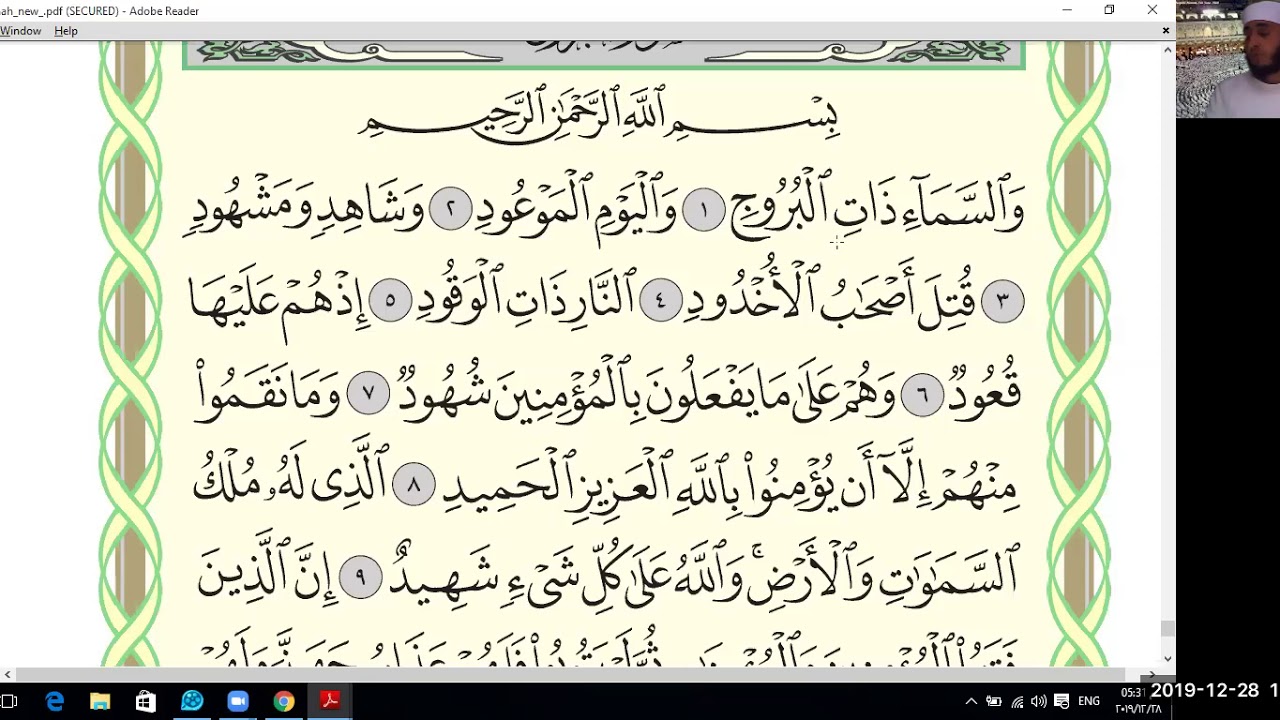 ah_new_.pdf (SECURED) - Adobe Reader
Window Help
بِسْمِ ٱللَّهِ ٱلرَّحْمَٰنِ ٱلرَّحِيمِ
وَٱلسَّمَآءِ ذَاتِ ٱلْبُرُوجِ ١ وَٱلْيَوْمِ ٱلْمَوْعُودِ ٢ وَشَاهِدٍ وَمَشْهُودٍ
٣ قُتِلَ أَصْحَٰبُ ٱلْأُخْدُودِ ٤ ٱلنَّارِ ذَاتِ ٱلْوَقُودِ ٥ إِذْ هُمْ عَلَيْهَا
قُعُودٌ ٦ وَهُمْ عَلَىٰ مَا يَفْعَلُونَ بِٱلْمُؤْمِنِينَ شُهُودٌ ٧ وَمَا نَقَمُوا۟
مِنْهُمْ إِلَّآ أَن يُؤْمِنُوا۟ بِٱللَّهِ ٱلْعَزِيزِ ٱلْحَمِيدِ ٨ ٱلَّذِى لَهُۥ مُلْكُ
ٱلسَّمَٰوَٰتِ وَٱلْأَرْضِ ۚ وَٱللَّهُ عَلَىٰ كُلِّ شَىْءٍ شَهِيدٌ ٩ إِنَّ ٱلَّذِينَ
ENG
05:31
2019-12-28 1
٢٠١٩/١٢/٢٨